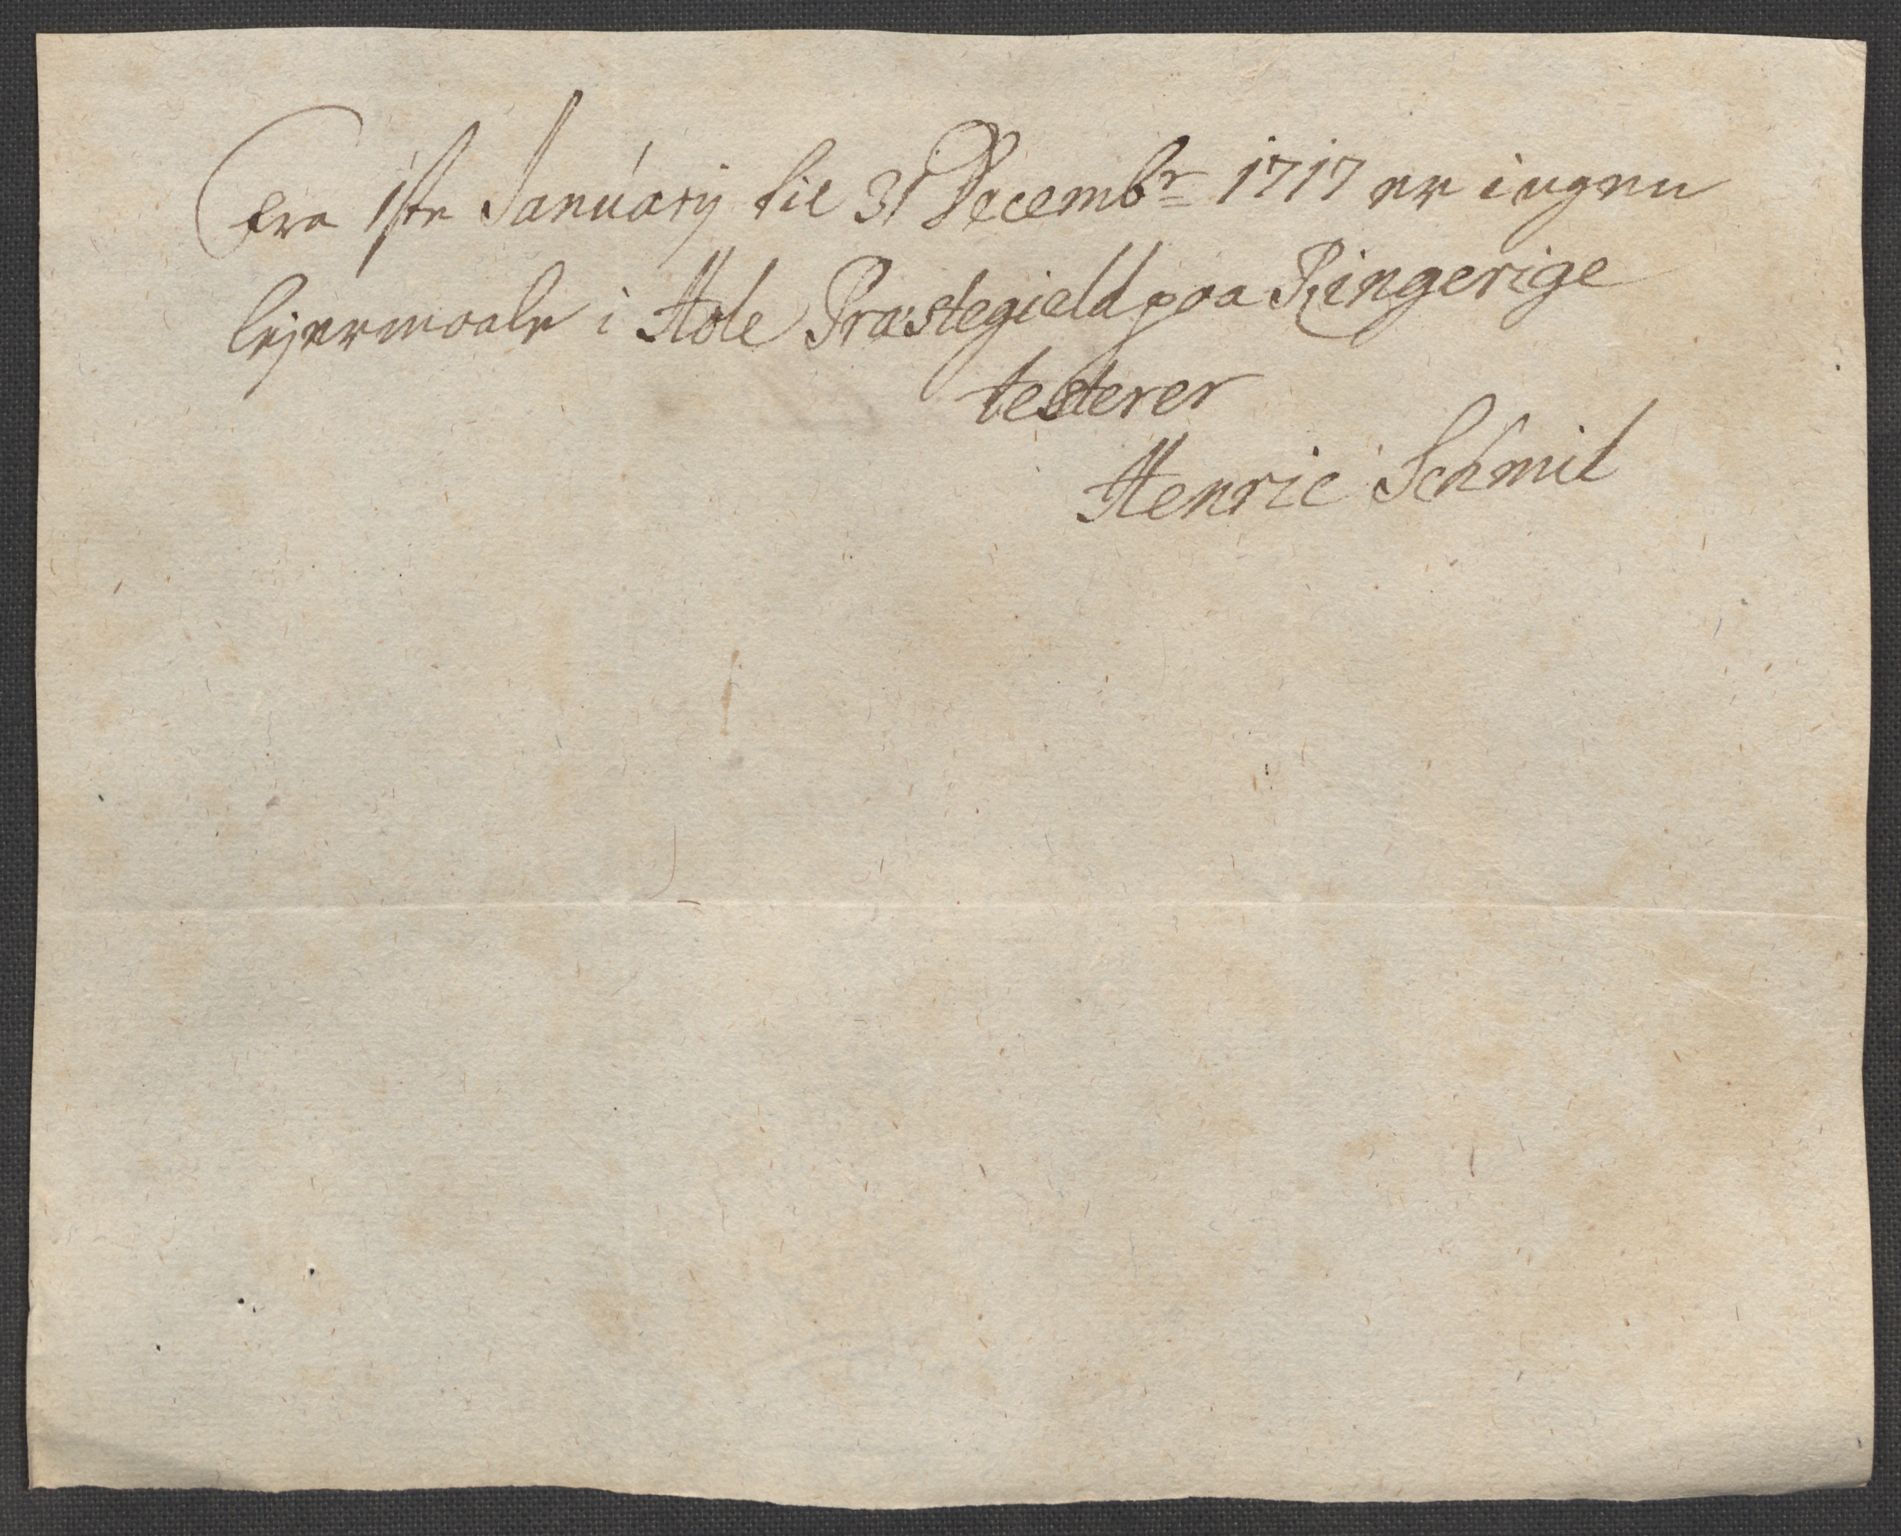 Fra 1ste Januarij til 31 Decembr 1717 er ingen
lejermaale i Hole Præstegield paa Ringerige
testerer
Henric Schmit